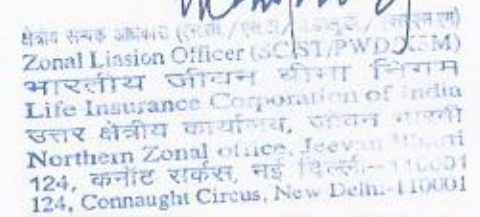 क्षेत्रीय सम्पर्क अधिकारी
Zonal Liasion Officer (SC/ST/PWD/XSM)
भारतीय जीवन बीमा निगम
Life Insurance Corporation of India
उत्तर क्षेत्रीय कार्यालय, जीवन भारती
Northern Zonal office, Jeevan Bharti
124, कनॉट सर्कस, नई दिल्ली-110001
124, Connaught Circus, New Delhi-110001